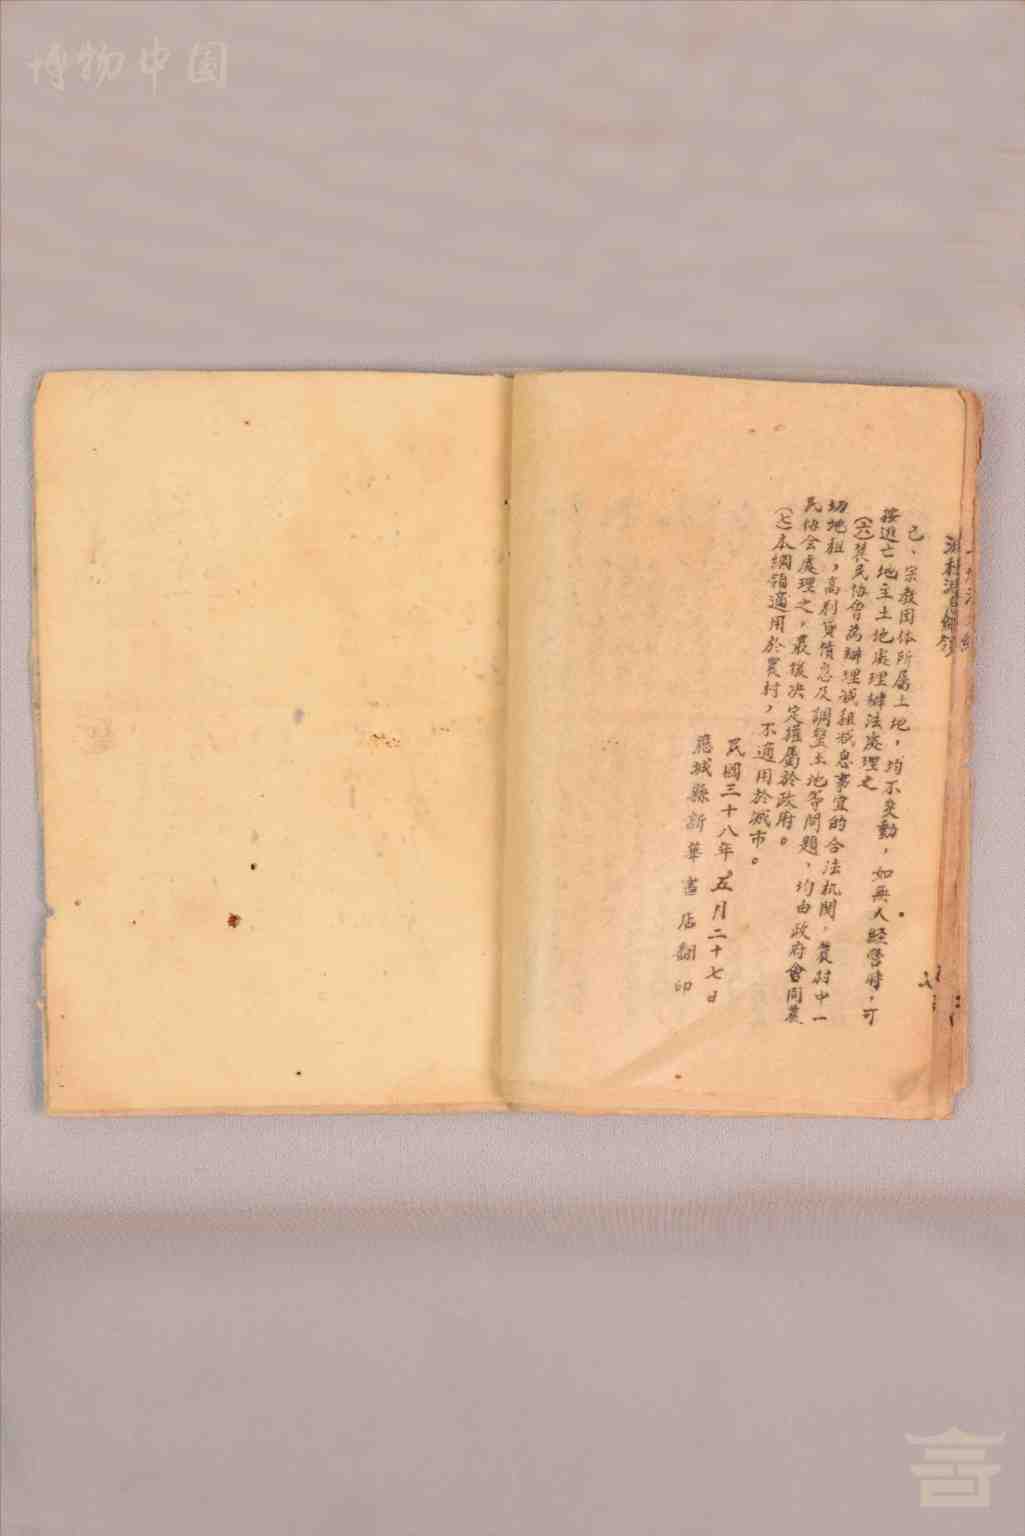 博物中国
己、宗教团体所屬土地，均不变動，如無人經营時，可
按逃亡地主土地處理辦法處理之
(六)農民協會為辦理减租减息事宜的合法机関，農村中一
切地租，高利貸債息及調整土地等問題，均由政府會同農
民協会處理之，最後决定權屬於政府。
(七)本綱領適用於農村，不適用於城市。
民國三十八年五月二十七日
應城縣新華書店翻印